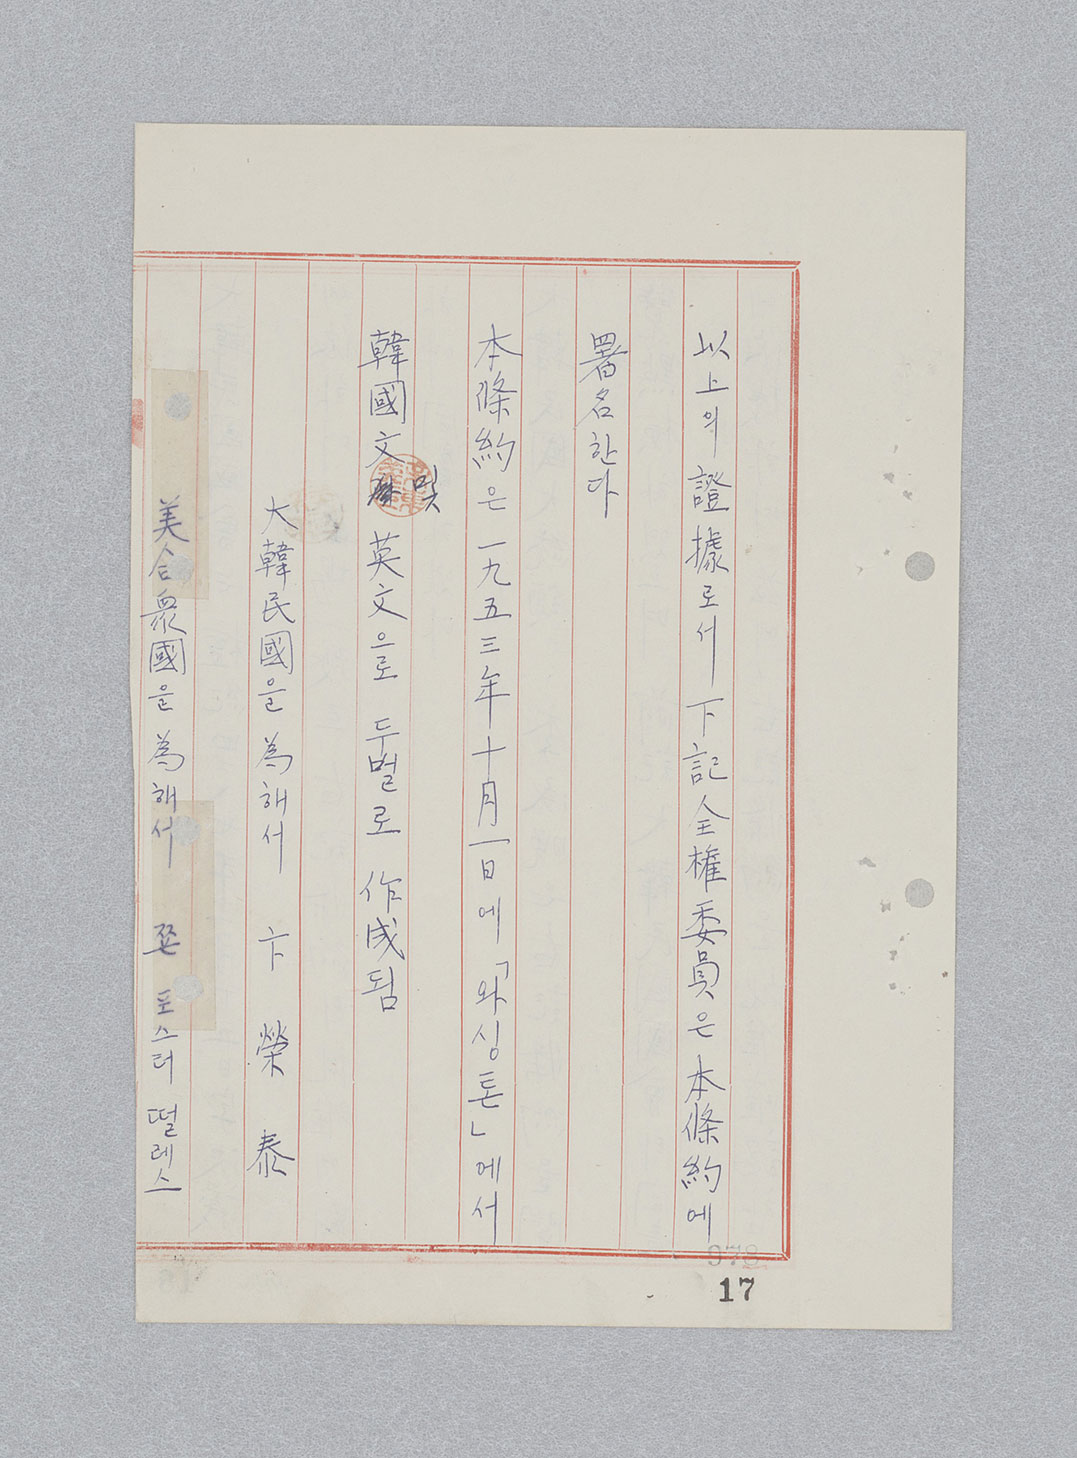 以上의 證據로서 下記全權委員은 本條約에
署名한다
本條約은 一九五三年十月一日에 「와싱톤」에서
韓國文 및 英文으로 두벌로 作成됨
大韓民國을 為해서 卞榮泰
美合衆國을 為해서 쫀 포스터 떨레스
978
17